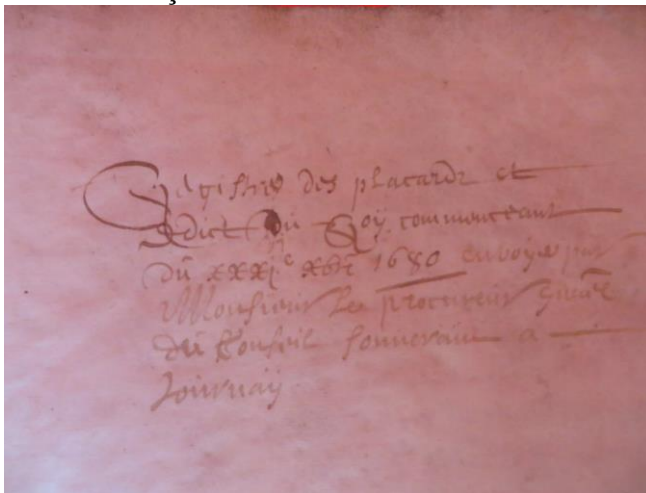 Registre des placardz et
Edict du Roy commenceant
du xxxj.e xbre 1680 envoyé par
Monsieur le procureur gnãl
du Conseil souverain a
Tournaÿ